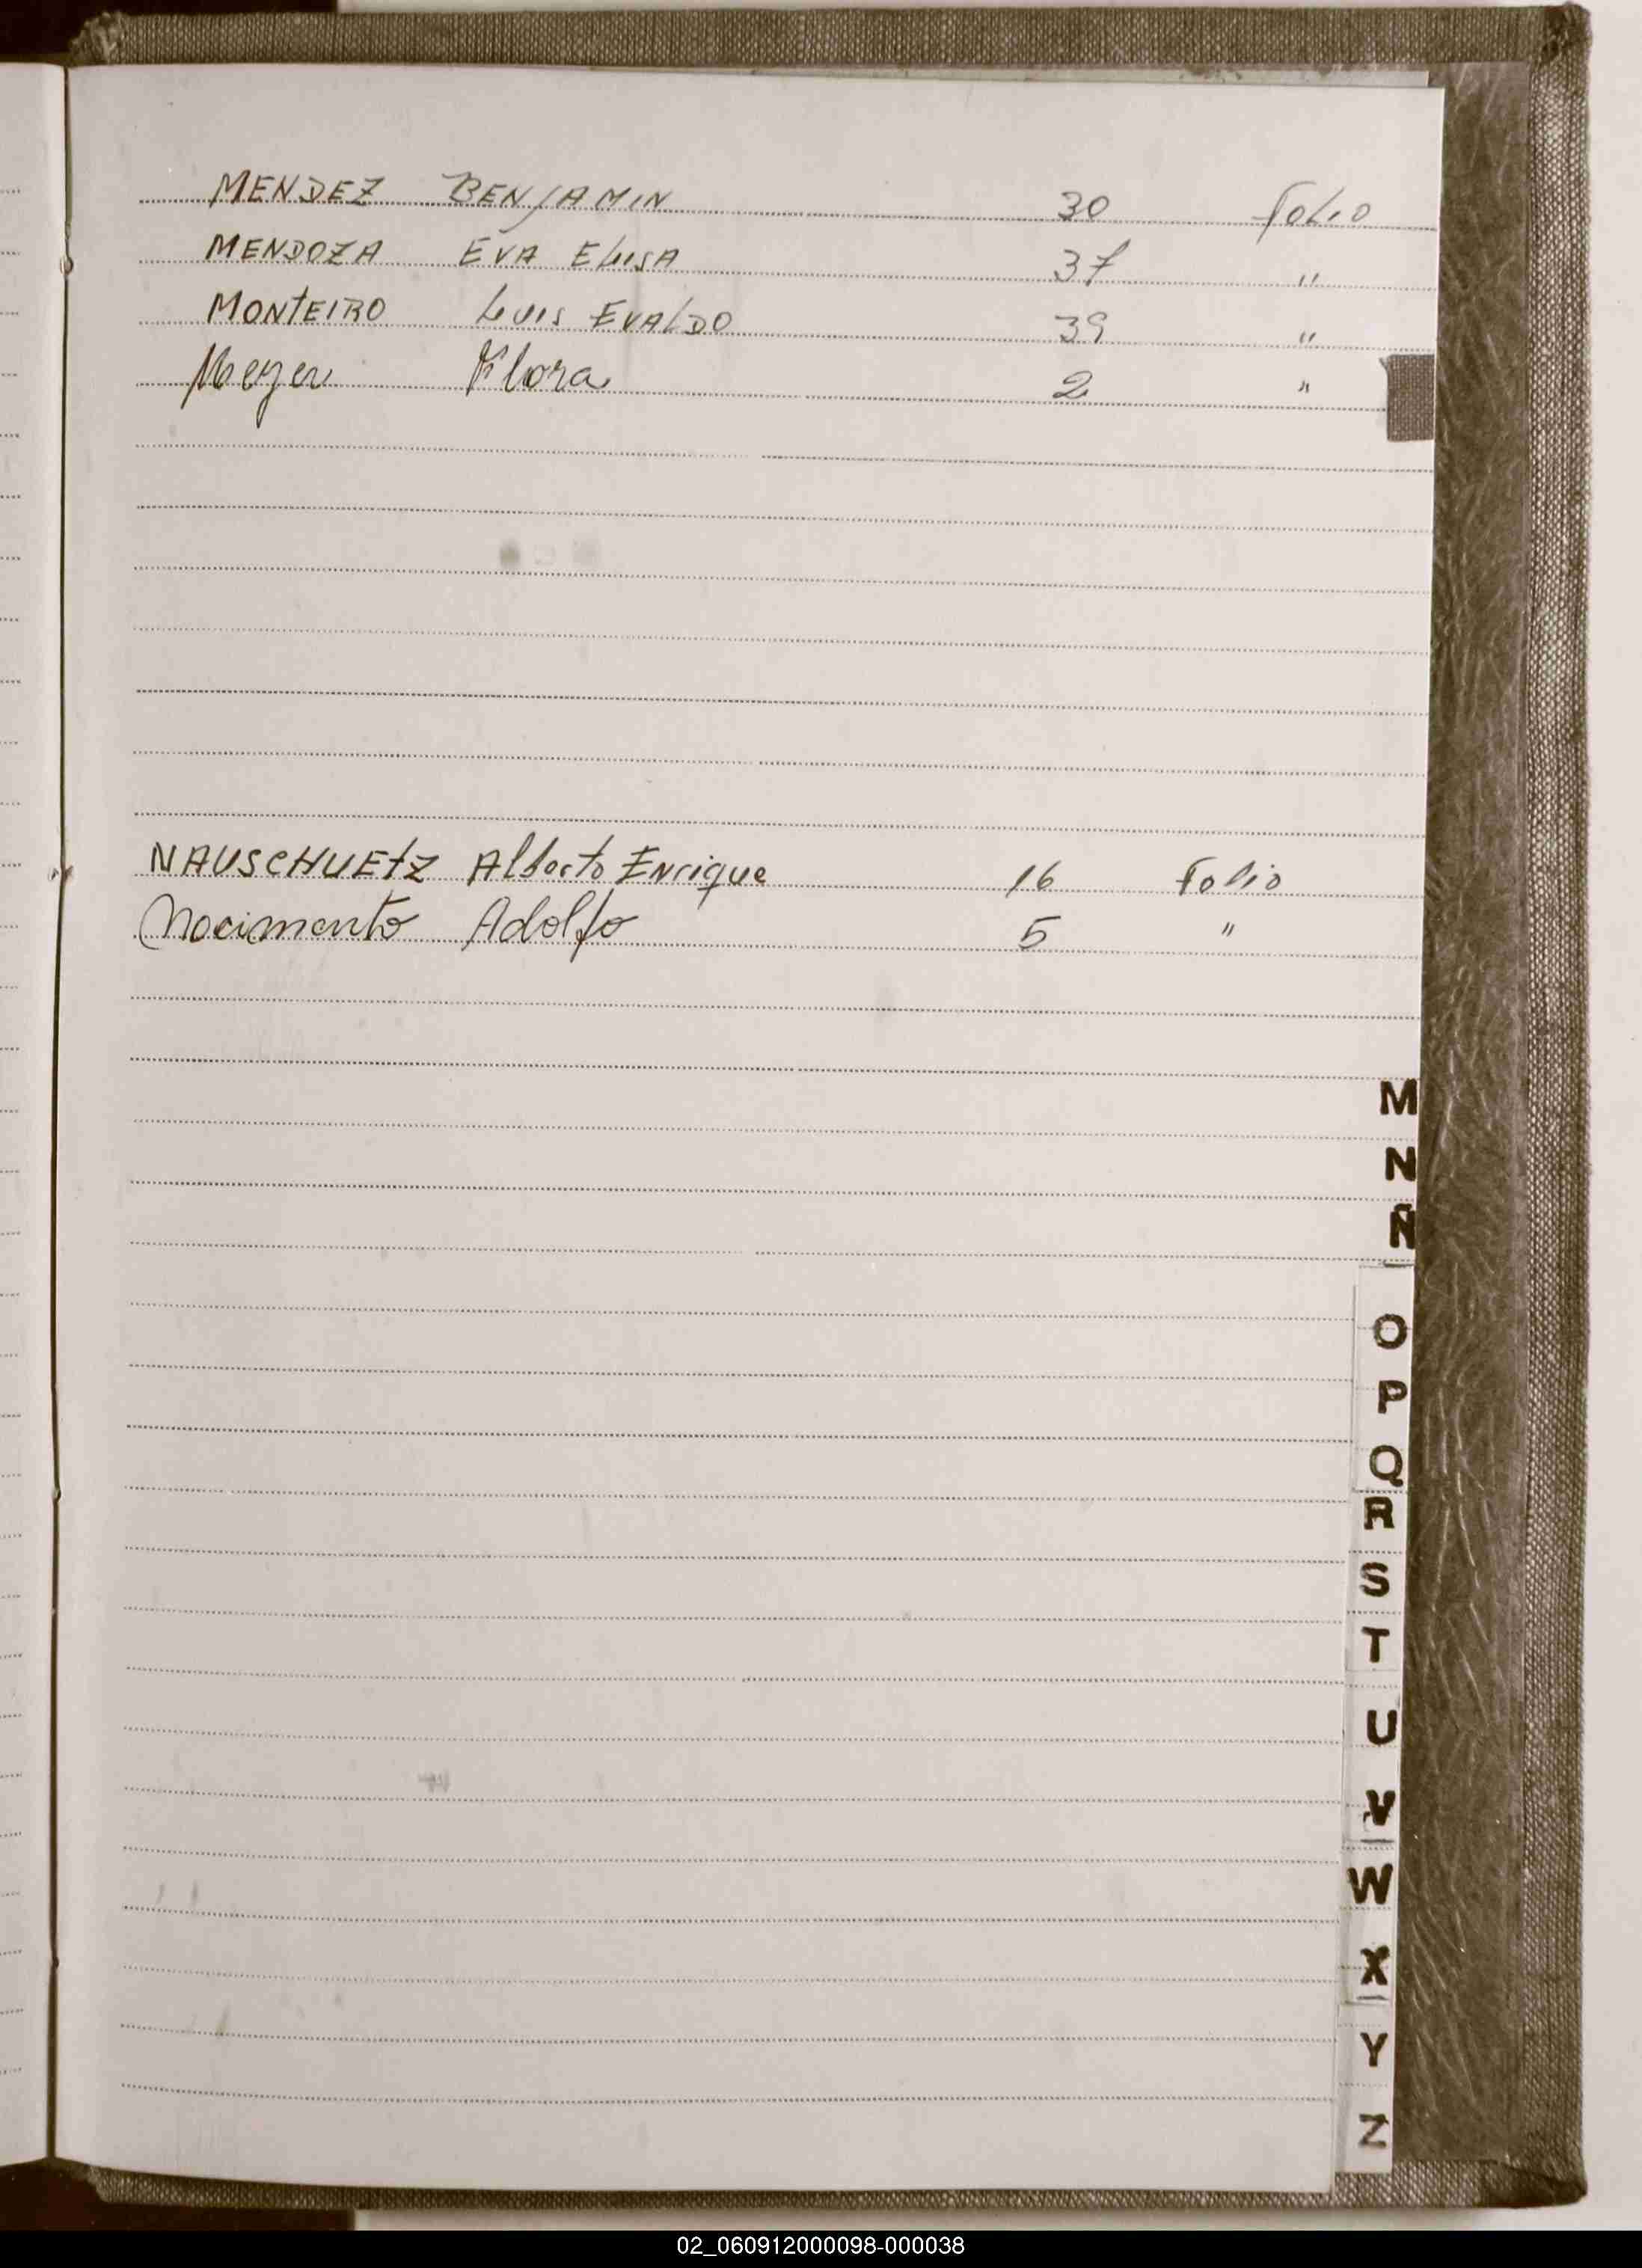 MENDEZ BENJAMIN 30 Folio
MENDOZA EVA ELUISA 37 "
MONTEIRO LUIS EVALDO 39 "
Meyer Flora 2 "
NAUSCHUETZ Alberto Enrique 16 Folio
Nacimento Adolfo 5 "
M
N
Ñ
O
P
Q
R
S
T
U
V
W
X
Y
Z
02_060912000098-000038